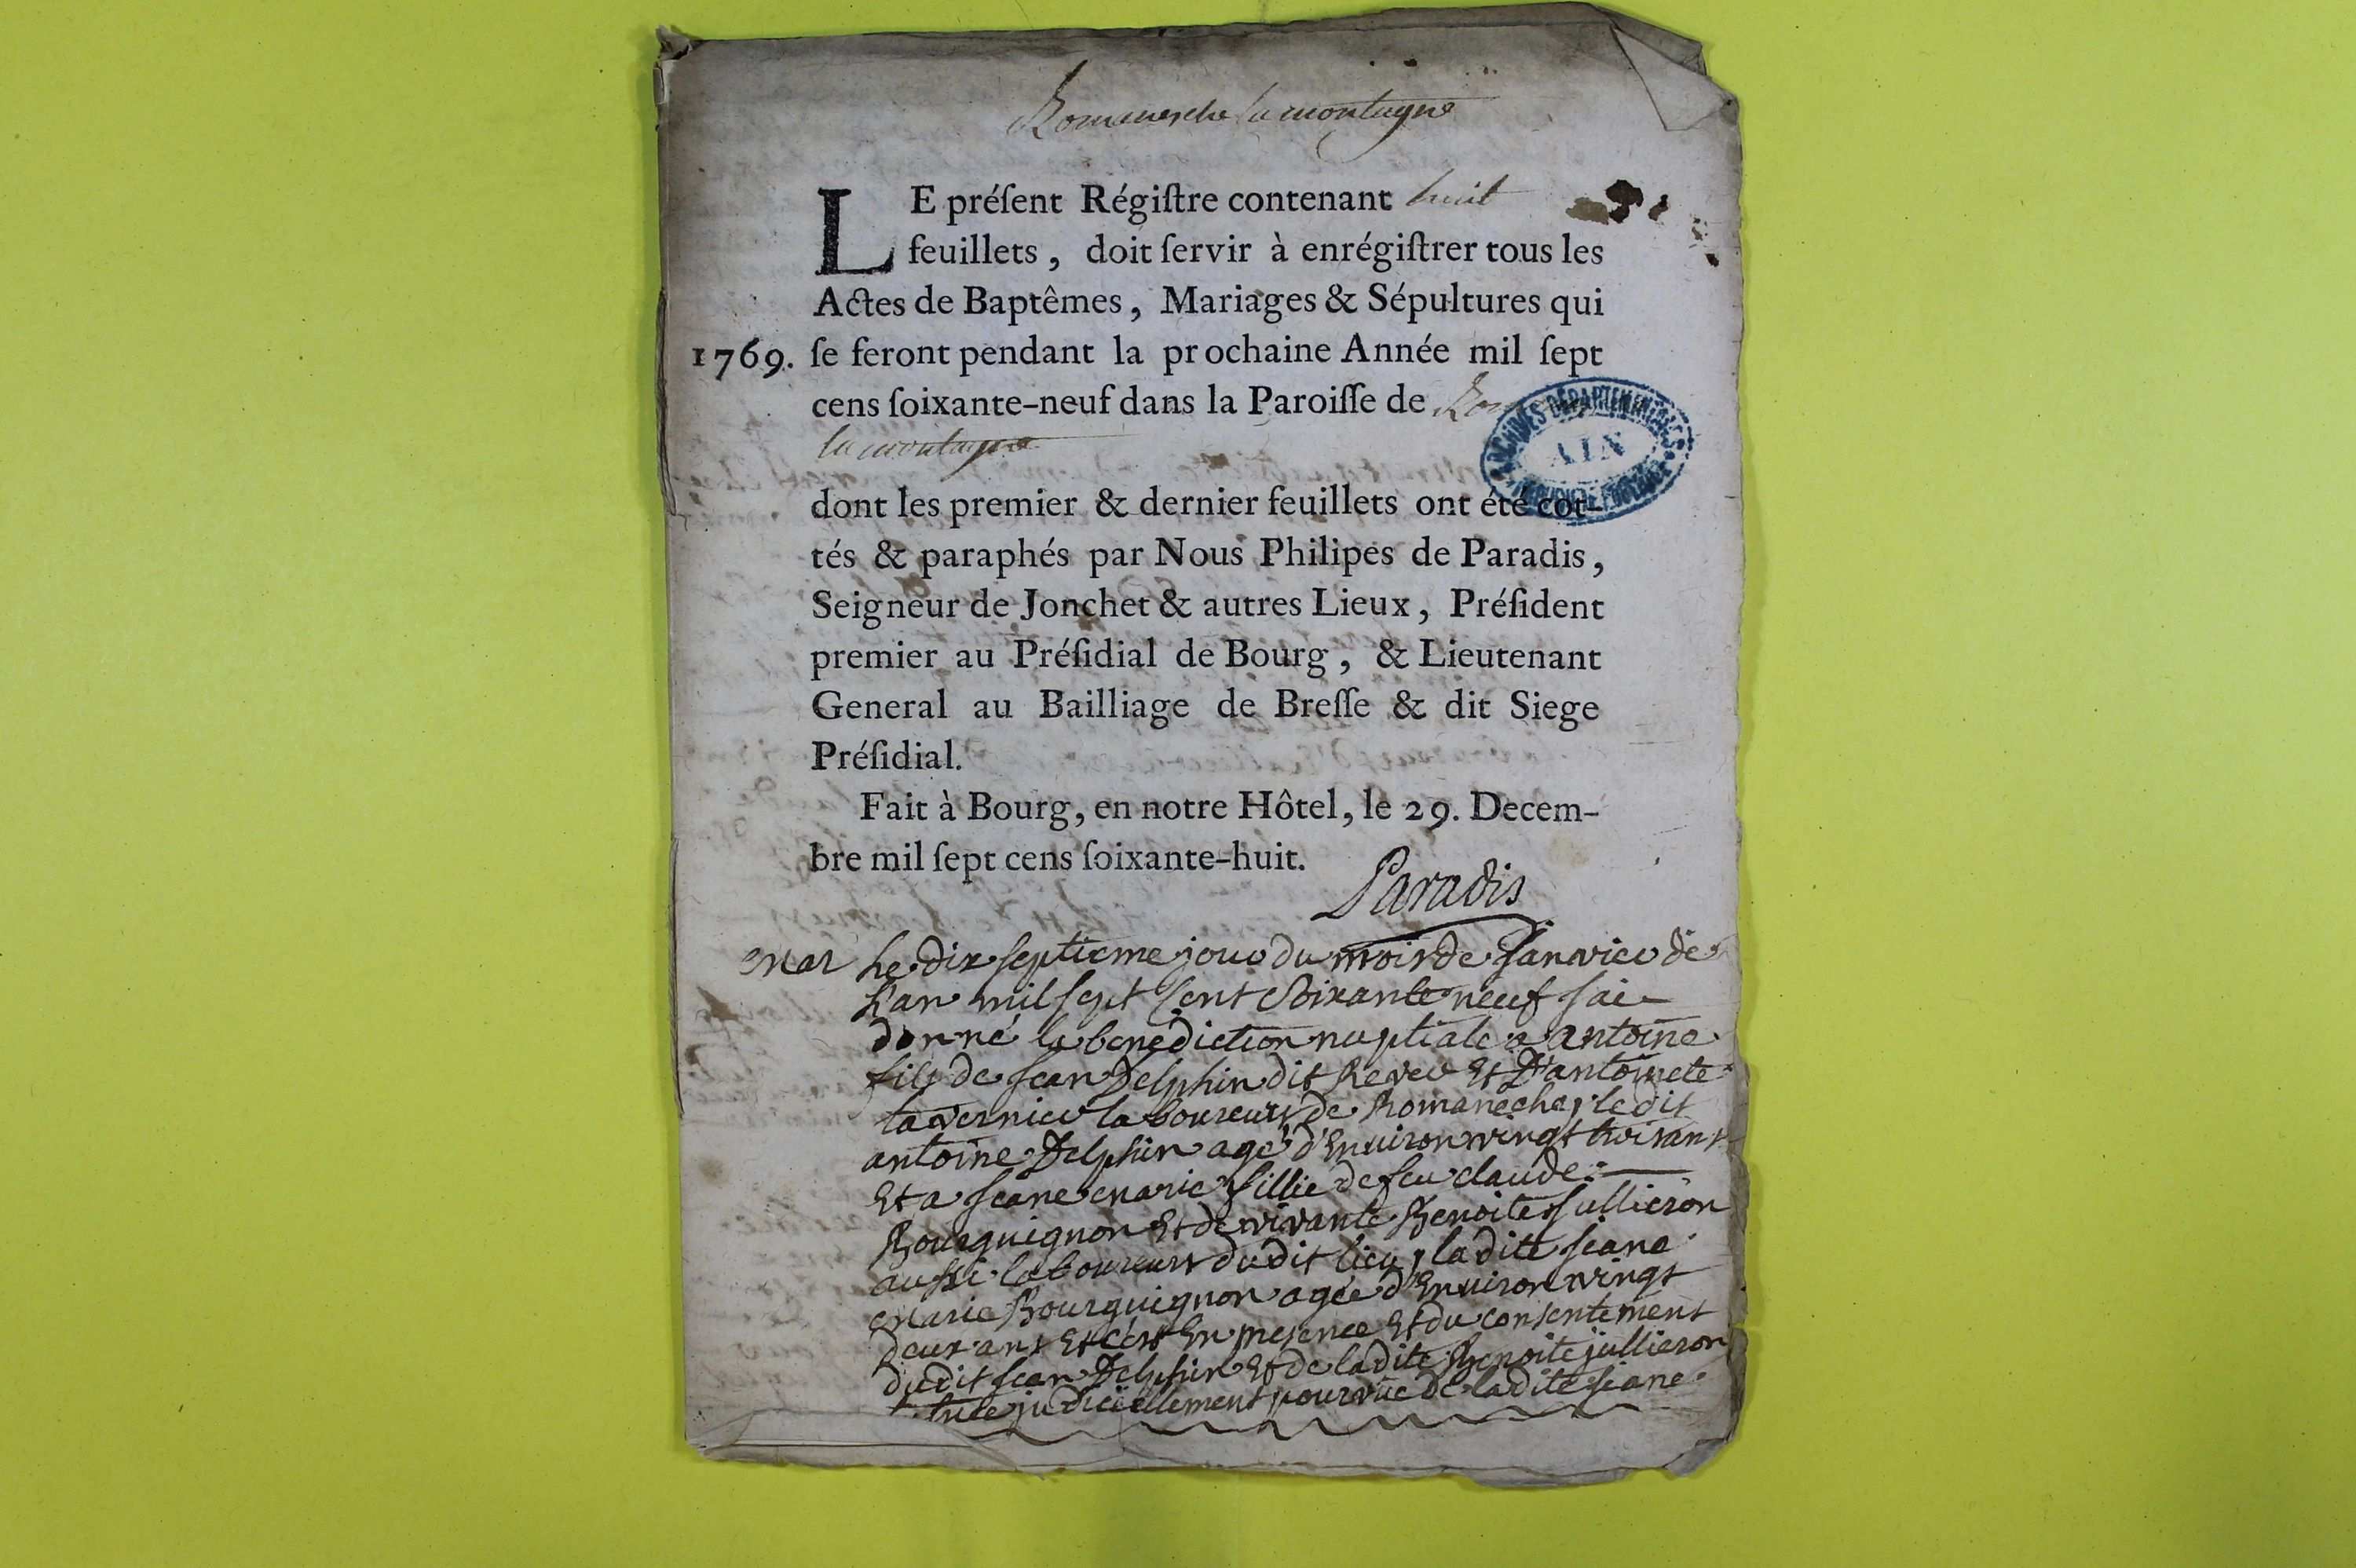 Romanesche la montagne
LE préſent Régiſtre contenant huit
feuillets , doit ſervir à enrégiſtrer tous les
Actes de Baptêmes , Mariages & Sépultures qui
1769. ſe feront pendant la prochaine Année mil ſept
cens ſoixante-neuf dans la Paroiſſe de
la montagne
ARCHIVES DÉPARTEMENTALES
AIN
dont les premier & dernier feuillets ont été cot-
tés & paraphés par Nous Philipes de Paradis ,
Seigneur de Jonchet & autres Lieux , Préſident
premier au Préſidial de Bourg , & Lieutenant
General au Bailliage de Breſſe & dit Siege
Préſidial.
Fait à Bourg, en notre Hôtel, le 29. Decem-
bre mil ſept cens ſoixante-huit.
Paradis
Mar Le dix septieme jour du mois de Janvier de
L'an mil sept Cent soixante neuf J'ai
donné la benediction nuptiale a antoine
fils de Jean Delphin dit Et D'antoinete
tavernier laboureurs de Romaneche, le dit
antoine Delphin agé d'Environ vingt trois ans
Et a Jeane Marie fillie de feu claude
Bourguignon Et de vivante Benoite Jullieron
aussi laboureurs dudit lieu, ladite Jeane
Marie Bourguignon agée d'Environ vingt
deux ans Et c'est En presence Et du consentement
dudit Jean Delphin Et de ladite Benoite jullieron
judiciellement pourvue de ladite Jeane